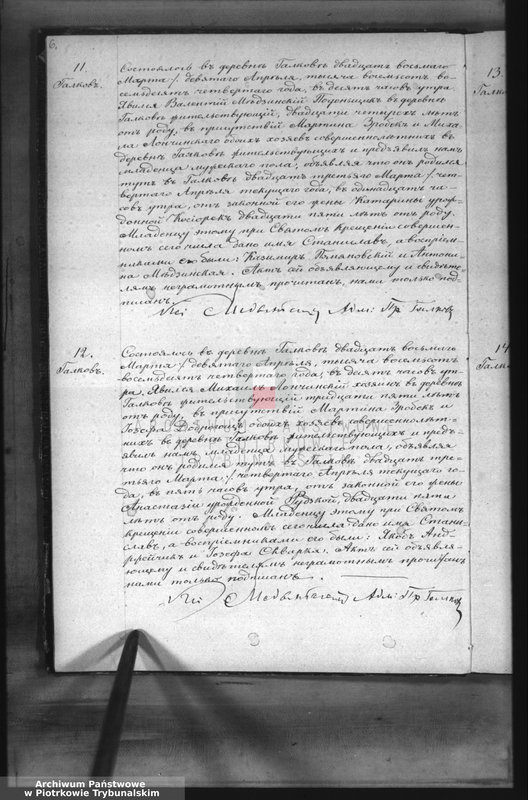 6.
11.
Галковъ.
Состоялось въ деревнѣ Галковѣ двадцать восьмаго
Марта /: девятаго Апрѣля, тысяча восемсотъ во-
семьдесятъ четвертаго года, въ десять часовъ утра.
Явился Валентій поденщикъ въ деревнѣ
Галковѣ жительствующій, двадцати четырехъ лѣтъ
отъ роду, въ присутствіи Мартина Зробекъ и Миха-
ла Лончинскаго обоихъ хозяевъ совершеннолѣтнихъ въ
деревнѣ Галковѣ жительствующихъ и предъявилъ намъ
младенца мужескаго пола; объявляя что онъ родился
тутъ въ Галковѣ двадцать третьяго Марта /: чет-
вертаго Апрѣля текущаго года, въ одинадцать ча-
совъ утра, отъ законной его жены Катарины урож-
донной Косіорекъ двадцати пяти лѣтъ отъ роду.
Младенцу этому при Святомъ крещеніи совершен-
номъ сего числа дано имя Станиславъ, а воспріем-
никами его были: Казимиръ и Антони-
на. Актъ сей объявляющему и свидѣте-
лямъ неграмотнымъ прочитанъ, нами только под-
писанъ.
Адм: Пр. Галков
12.
Галковъ.
Состоялось въ деревнѣ Галковѣ двадцать восьмаго
Марта /: девятаго Апрѣля, тысяча восемсотъ
восемьдесятъ четвертаго года; въ десять часовъ ут-
ра; Явился Михаилъ Лончинскій хозяинъ въ деревнѣ
Галковѣ жительствующій тридцати пяти лѣтъ
отъ роду, въ присутствіи Мартина Зробекъ и
Іозефа обоихъ хозяевъ совершеннолѣт-
нихъ въ деревнѣ Галковѣ жительствующихъ и предъ-
явилъ намъ младенца мужескаго пола; объявляя
что онъ родился тутъ въ Галковѣ двадцать тре-
тьяго Марта /: четвертаго Апрѣля текущаго го-
да, въ пять часовъ утра, отъ законной его жены
Анастазіи урожденной двадцати пяти
лѣтъ отъ роду. Младенцу этому при Святомъ
крещеніи совершенномъ сего числа дано имя Стани-
славъ, а воспріемниками его были: Якобъ Анд-
рейчикъ и Іозефа Скварка. Актъ сей объявля-
ющему и свидѣтелямъ неграмотнымъ прочитанъ
нами только подписанъ.
Адм: Пр Галков
13.
Галко
14
Галко
Archiwum Państwowe
w Piotrkowie Trybunalskim